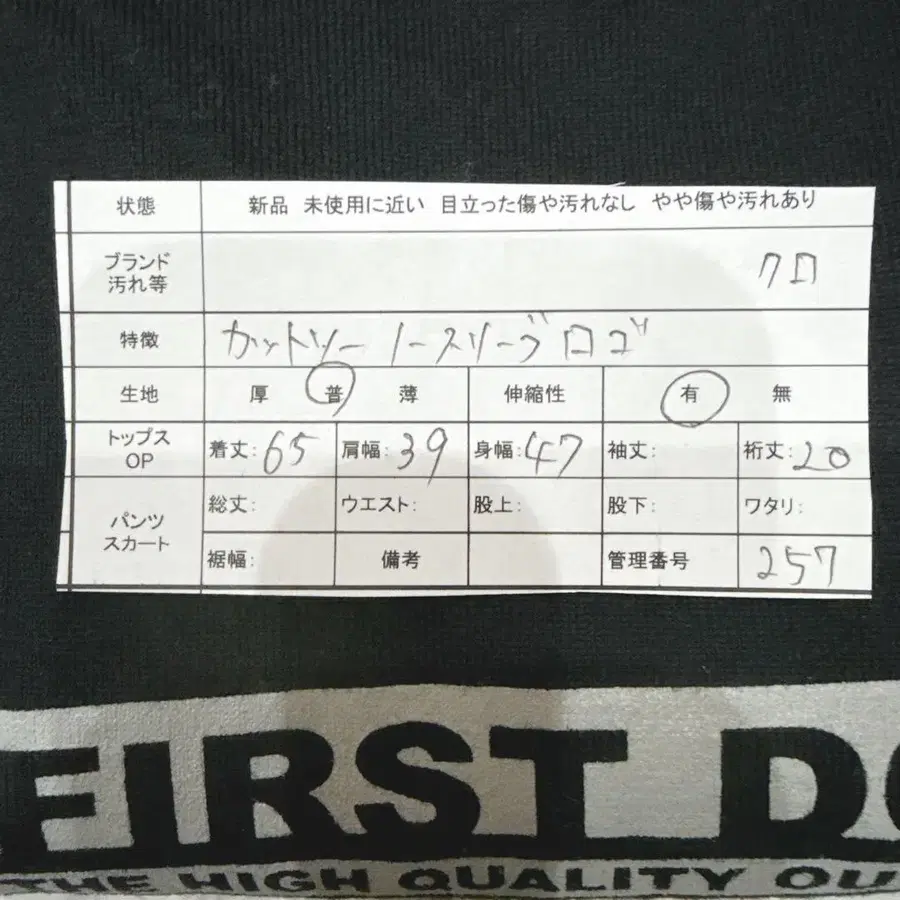 状態 新品 未使用に近い 目立った傷や汚れなし やや傷や汚れあり
ブランド
汚れ等 クロ
特徴 カットソー ノースリーブ ロゴ
生地 厚 普 薄 伸縮性 有 無
トップス
OP 着丈:65 肩幅:39 身幅:47 袖丈: 裄丈:20
パンツ
スカート 総丈: ウエスト: 股上: 股下: ワタリ:
裾幅: 備考 管理番号 257
FIRST DO
THE HIGH QUALITY QU